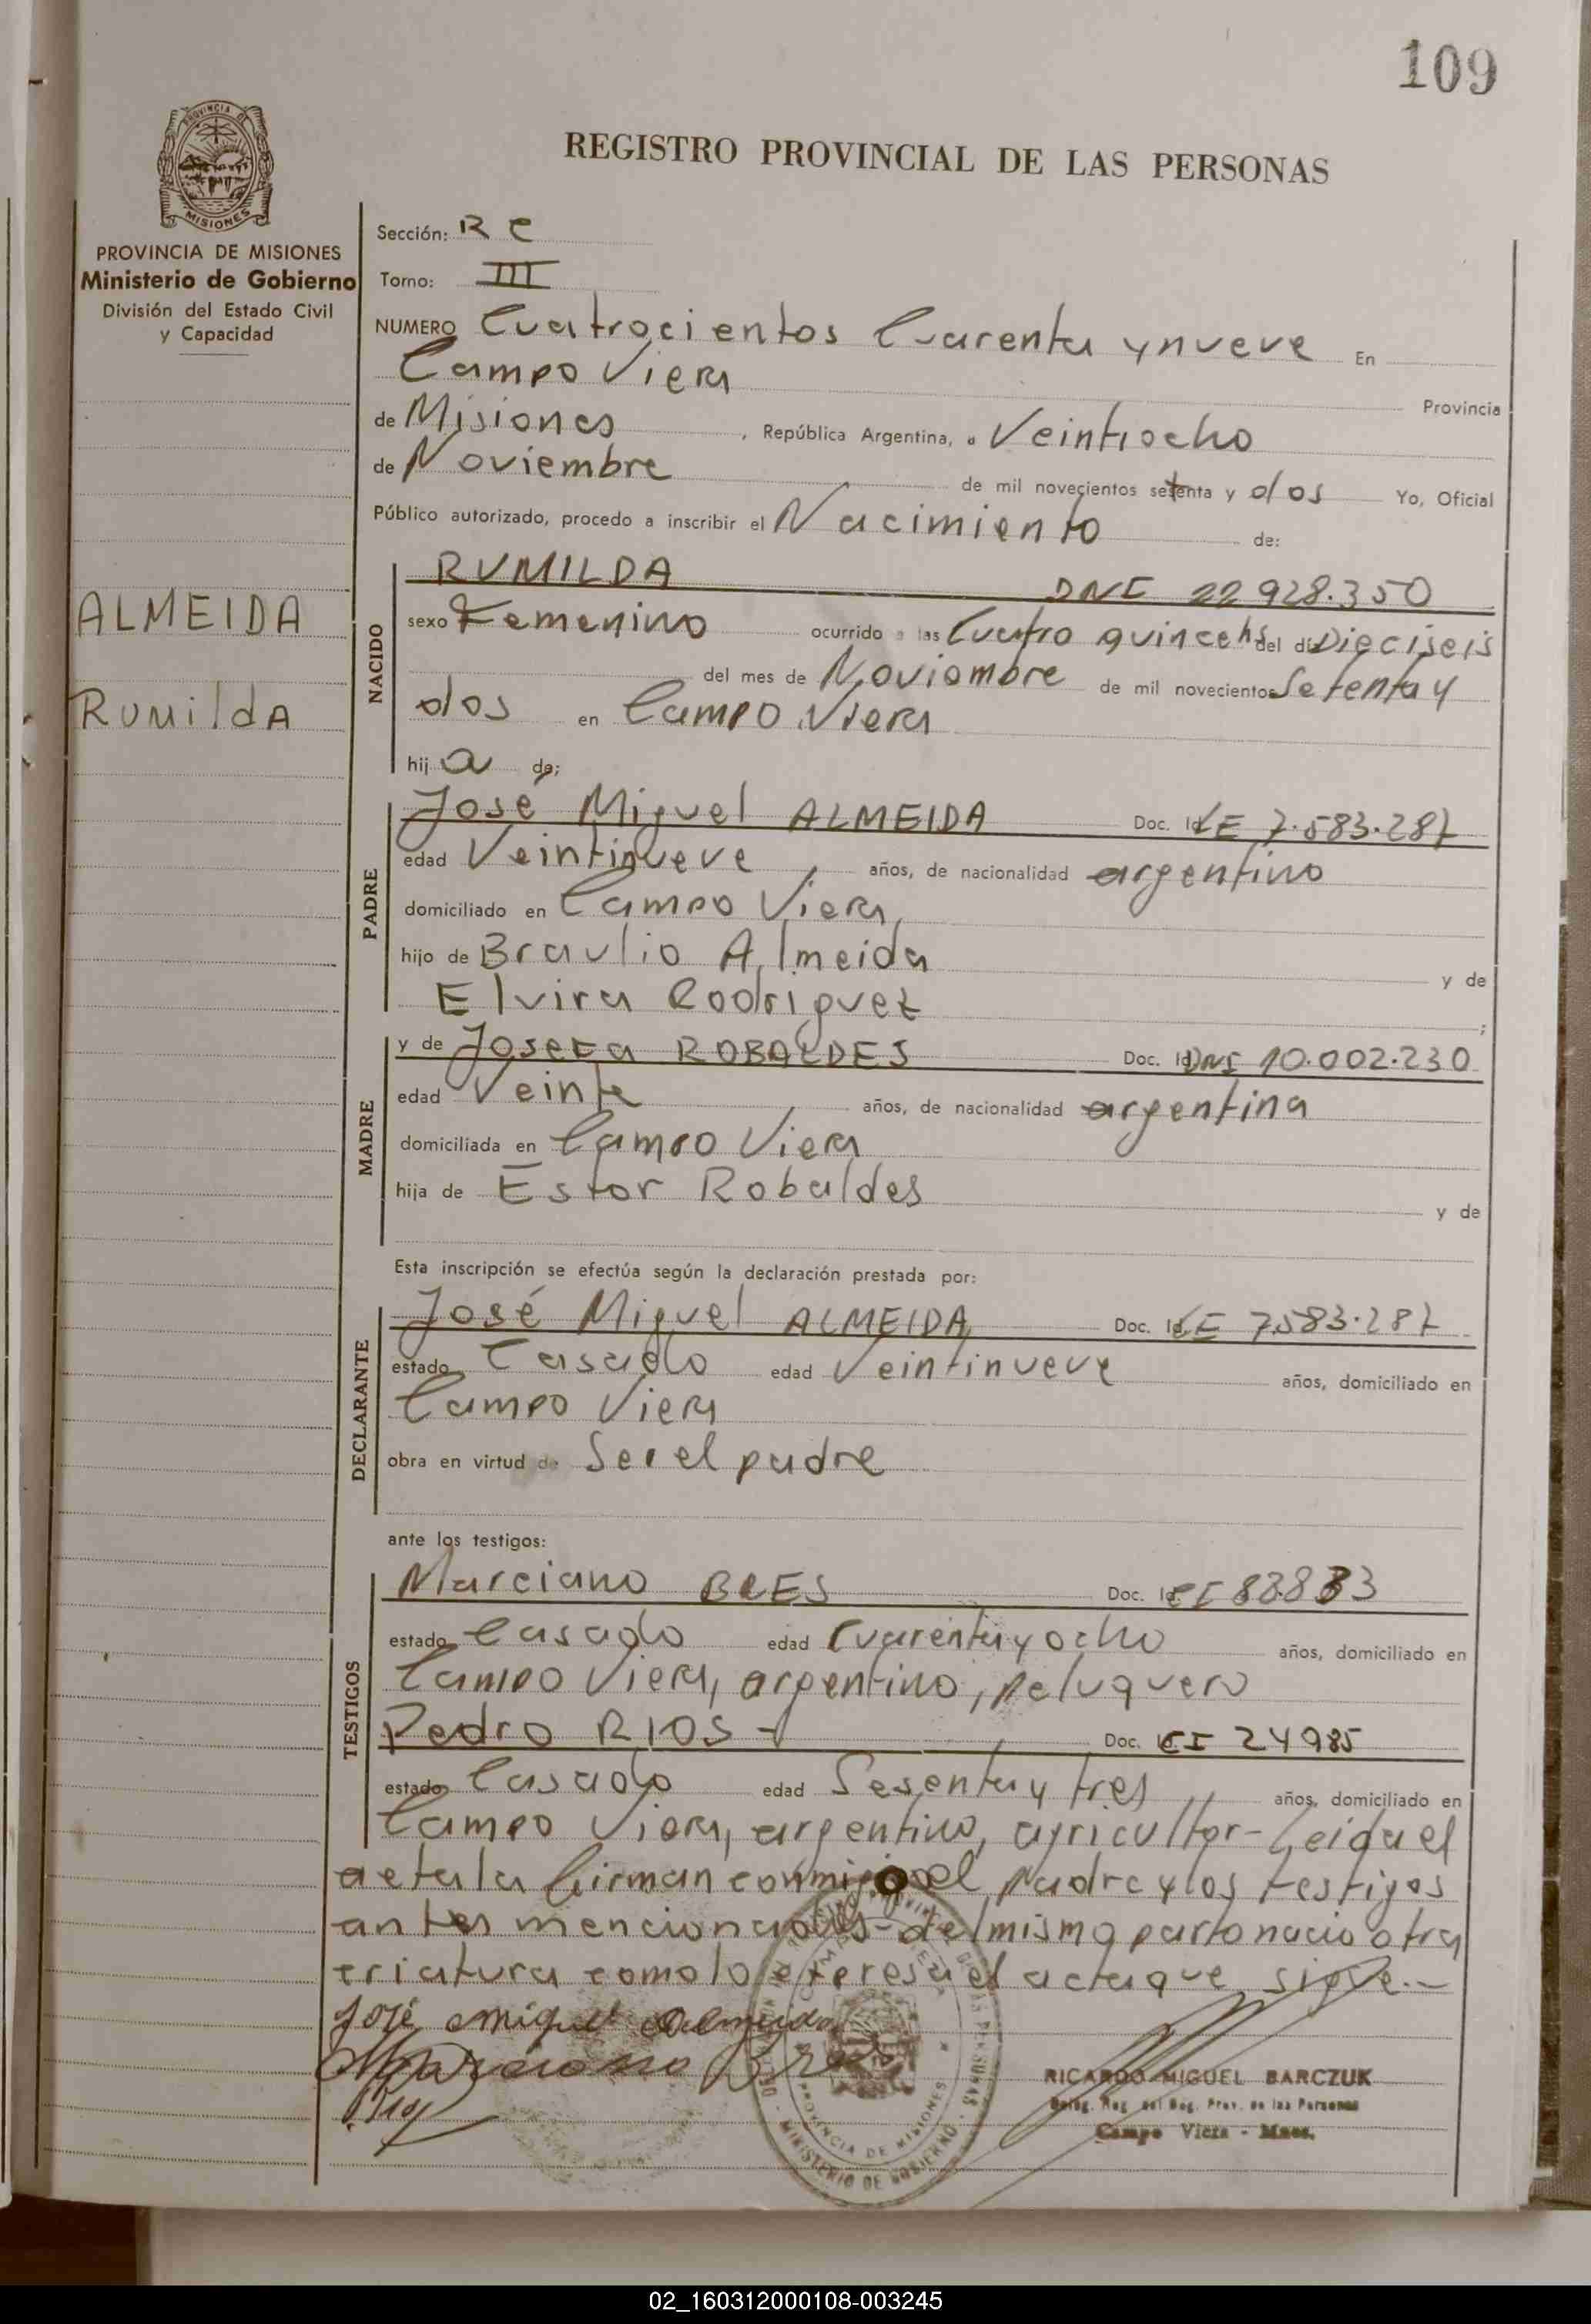 109
REGISTRO PROVINCIAL DE LAS PERSONAS
PROVINCIA DE MISIONES
Ministerio de Gobierno
División del Estado Civil
y Capacidad
ALMEIDA
RUMILDA
Sección: R C
Tomo: III
NUMERO Cuatrocientos Cuarenta y nueve En
Campo Viera Provincia
de Misiones, República Argentina, a Veintiocho
de Noviembre de mil novecientos setenta y dos Yo, Oficial
Público autorizado, procedo a inscribir el Nacimiento de:
NACIDO
RUMILDA DNI 22 928.350
sexo Femenino ocurrido a las Cuatro quince hs del día Dieciseis
del mes de Noviembre de mil novecientos Setenta y
dos en Campo Viera
hij a de;
PADRE
José Miguel ALMEIDA Doc. Id LE 7.583.287
edad Veintinueve años, de nacionalidad argentino
domiciliado en Campo Viera,
hijo de Braulio Almeida y de
Elvira Rodriguez ;
MADRE
y de Josefa ROBALDES Doc. Id DNI 10.002.230
edad Veinte años, de nacionalidad argentina
domiciliada en Campo Viera
hija de Estor Robaldes y de
Esta inscripción se efectúa según la declaración prestada por:
DECLARANTE
José Miguel ALMEIDA Doc. Id LE 7.583.287
estado Casado edad Veintinueve años, domiciliado en
Campo Viera
obra en virtud de Ser el padre
ante los testigos:
TESTIGOS
Marciano BRES Doc. Id CI 83883
estado Casado edad Cuarenta y ocho años, domiciliado en
Campo Viera, argentino, peluquero
Pedro RIOS - Doc. CI 24985
estado Casado edad Sesenta y tres años, domiciliado en
Campo Viera, argentino, agricultor - Leida el
acta la firman conmigo el padre y los testigos
antes mencionados - del mismo parto nacio otra
criatura como lo expresa el acta que sigue.-
José Miguel Almeida
Marciano Bres
Rios
PROVINCIA DE MISIONES
MINISTERIO DE GOBIERNO
RICARDO MIGUEL BARCZUK
Deleg. Reg. del Reg. Prov. de las Personas
Campo Viera - Mnes.
02_160312000108-003245